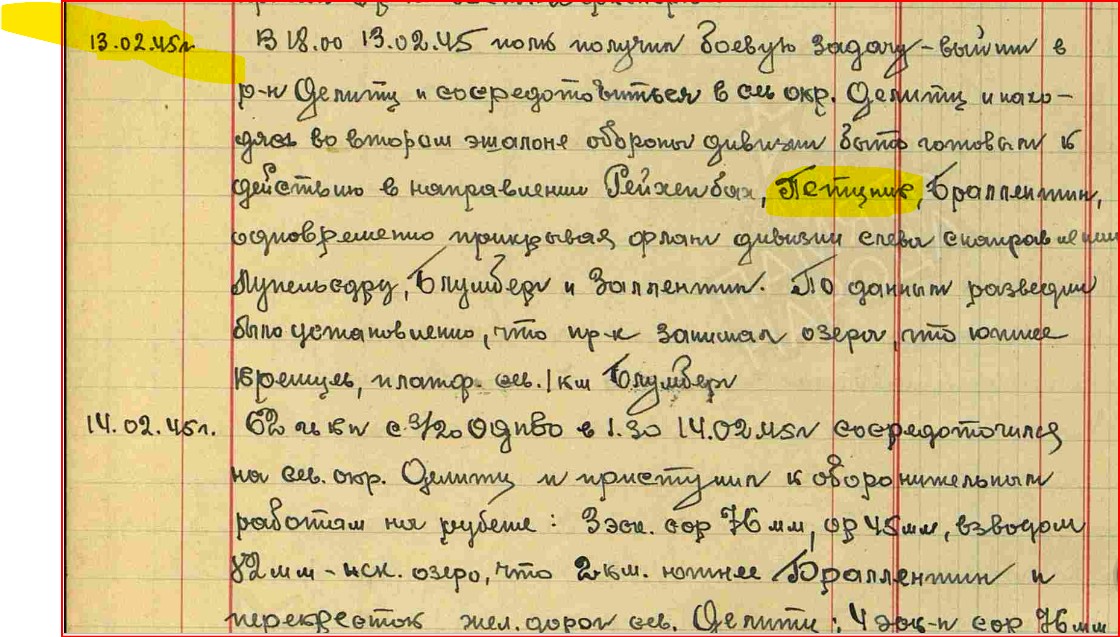 13.02.45г. В 18.00 13.02.45 полк получил боевую задачу – выйти в
р-н Делитц и сосредоточиться в сев окр. Делитц и нахо-
дясь во втором эшалоне обороны дивизии быть готовым к
действию в направлении Рейхенбах, Петцник, Браллентин,
одновременно прикрывая фланг дивизии слева с направлении
Блумберг и Заллентин. По данным разведки
было установленно, что пр-к занимал озера, что южнее
платф. сев. 1 км Блумберг
14.02.45г. 62 с 3/20 ОДПВО в 1.30 14.02.45г сосредоточился
на сев. окр. Делитц и приступил к оборонительным
работам на рубеже: 3 эск. с ор 76 мм, ор 45 мм, взводом
82 мм – иск. озеро, что 2 км. южнее Браллентин и
перекресток жел. дорог сев. Делитц; 4 эск-н с ор 76 мм